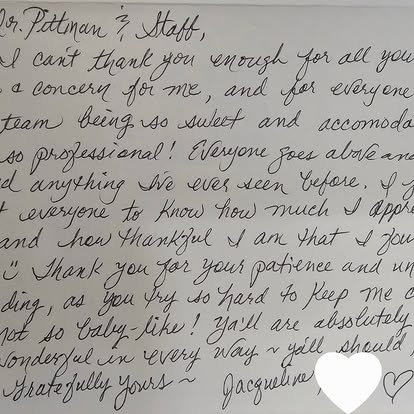 Dr. Pittman & Staff,
I can't thank you enough for all you
& concern for me, and for everyone
team being so sweet and accomoda
so professional! Everyone goes above and
d anything I've ever seen before. I j
t everyone to know how much I appre
and how thankful I am that I fou
Thank you for your patience and un
ding, as you try so hard to keep me c
not so baby-like! Ya'll are absolutely
wonderful in every way ~ y'all should
Gratefully yours ~ Jacqueline,